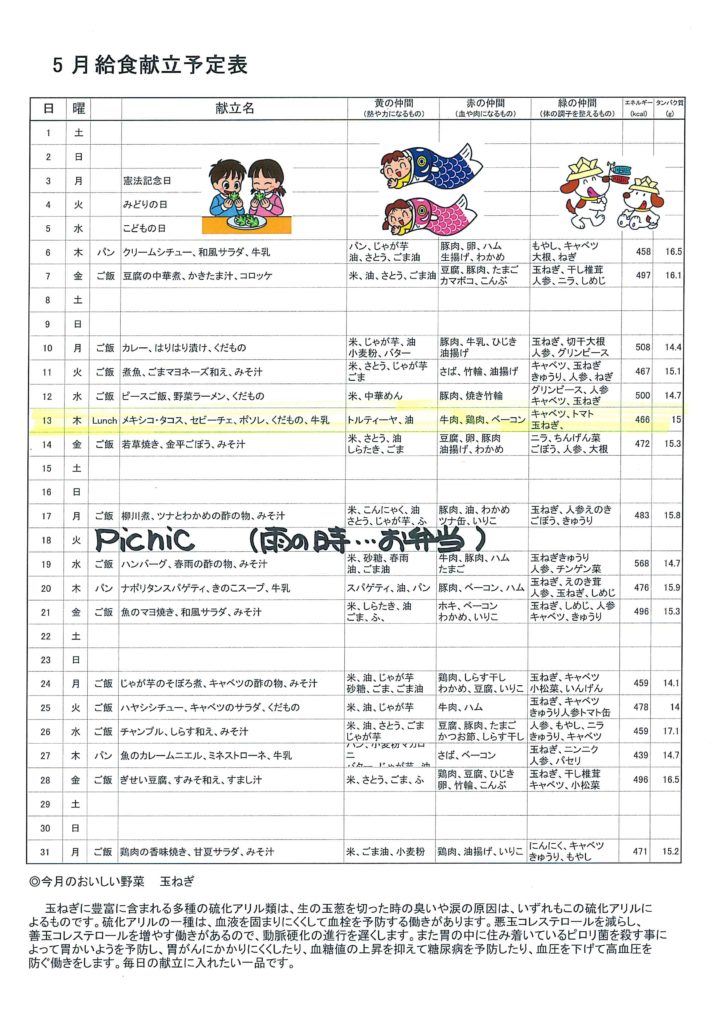 5月給食献立予定表
日 曜 献立名 黄の仲間 (熱や力になるもの) 赤の仲間 (血や肉になるもの) 緑の仲間 (体の調子を整えるもの) エネルギー (kcal) タンパク質 (g)
1 土
2 日
3 月 憲法記念日
4 火 みどりの日
5 水 こどもの日
6 木 パン クリームシチュー、和風サラダ、牛乳 パン、じゃが芋 油、さとう、ごま油 豚肉、卵、ハム 生揚げ、わかめ もやし、キャベツ 大根、ねぎ 458 16.5
7 金 ご飯 豆腐の中華煮、かきたま汁、コロッケ 米、油、さとう、ごま油 豆腐、豚肉、たまご カマボコ、こんぶ 玉ねぎ、干し椎茸 人参、ニラ、しめじ 497 16.1
8 土
9 日
10 月 ご飯 カレー、はりはり漬け、くだもの 米、じゃが芋、油 小麦粉、バター 豚肉、牛乳、ひじき 油揚げ 玉ねぎ、切干大根 人参、グリンピース 508 14.4
11 火 ご飯 煮魚、ごまマヨネーズ和え、みそ汁 米、さとう、じゃが芋 ごま さば、竹輪、油揚げ キャベツ、玉ねぎ きゅうり、人参、ねぎ 467 15.1
12 水 ご飯 ピースご飯、野菜ラーメン、くだもの 米、中華めん 豚肉、焼き竹輪 グリンピース、人参 キャベツ、玉ねぎ 500 14.7
13 木 Lunch メキシコ・タコス、セビーチェ、ポソレ、くだもの、牛乳 トルティーヤ、油 牛肉、鶏肉、ベーコン キャベツ、トマト 玉ねぎ、 466 15
14 金 ご飯 若草焼き、金平ごぼう、みそ汁 米、さとう、油 しらたき、ごま 豆腐、卵、豚肉 油揚げ、わかめ ニラ、ちんげん菜 ごぼう、人参、大根 472 15.3
15 土
16 日
17 月 ご飯 柳川煮、ツナとわかめの酢の物、みそ汁 米、こんにゃく、油 さとう、じゃが芋、ふ 豚肉、油、わかめ ツナ缶、いりこ 玉ねぎ、人参えのき ごぼう、きゅうり 483 15.8
18 火 Picnic (雨の時…お弁当)
19 水 ご飯 ハンバーグ、春雨の酢の物、みそ汁 米、砂糖、春雨 油、ごま油 牛肉、豚肉、ハム たまご 玉ねぎきゅうり 人参、チンゲン菜 568 14.7
20 木 パン ナポリタンスパゲティ、きのこスープ、牛乳 スパゲティ、油、パン 豚肉、ベーコン、ハム 玉ねぎ、えのき茸 人参、玉ねぎ、しめじ 476 15.9
21 金 ご飯 魚のマヨ焼き、和風サラダ、みそ汁 米、しらたき、油 ごま、ふ、 ホキ、ベーコン わかめ、いりこ 玉ねぎ、しめじ、人参 キャベツ、きゅうり 496 15.3
22 土
23 日
24 月 ご飯 じゃが芋のそぼろ煮、キャベツの酢の物、みそ汁 米、油、じゃが芋 砂糖、ごま、ごま油 鶏肉、しらす干し わかめ、豆腐、いりこ 玉ねぎ、キャベツ 小松菜、いんげん 459 14.1
25 火 ご飯 ハヤシシチュー、キャベツのサラダ、くだもの 米、油、じゃが芋 牛肉、ハム 玉ねぎ、キャベツ きゅうり人参トマト缶 478 14
26 水 ご飯 チャンプル、しらす和え、みそ汁 米、油、さとう、ごま じゃが芋 豆腐、豚肉、たまご かつお節、しらす干し 人参、もやし、ニラ きゅうり、キャベツ 459 17.1
27 木 パン 魚のカレームニエル、ミネストローネ、牛乳 パン、小麦粉マカロニ バター、じゃが芋、油 さば、ベーコン 玉ねぎ、ニンニク 人参、パセリ 439 14.7
28 金 ご飯 ぎせい豆腐、すみそ和え、すまし汁 米、さとう、ごま、ふ 鶏肉、豆腐、ひじき 卵、竹輪、こんぶ 玉ねぎ、干し椎茸 キャベツ、小松菜 496 16.5
29 土
30 日
31 月 ご飯 鶏肉の香味焼き、甘夏サラダ、みそ汁 米、ごま油、小麦粉 鶏肉、油揚げ、いりこ にんにく、キャベツ きゅうり、もやし 471 15.2
◎今月のおいしい野菜 玉ねぎ
玉ねぎに豊富に含まれる多種の硫化アリル類は、生の玉葱を切った時の臭いや涙の原因は、いずれもこの硫化アリルに
よるものです。硫化アリルの一種は、血液を固まりにくくして血栓を予防する働きがあります。悪玉コレステロールを減らし、
善玉コレステロールを増やす働きがあるので、動脈硬化の進行を遅くします。また胃の中に住み着いているピロリ菌を殺す事に
よって胃かいようを予防し、胃がんにかかりにくくしたり、血糖値の上昇を抑えて糖尿病を予防したり、血圧を下げて高血圧を
防ぐ働きをします。毎日の献立に入れたい一品です。